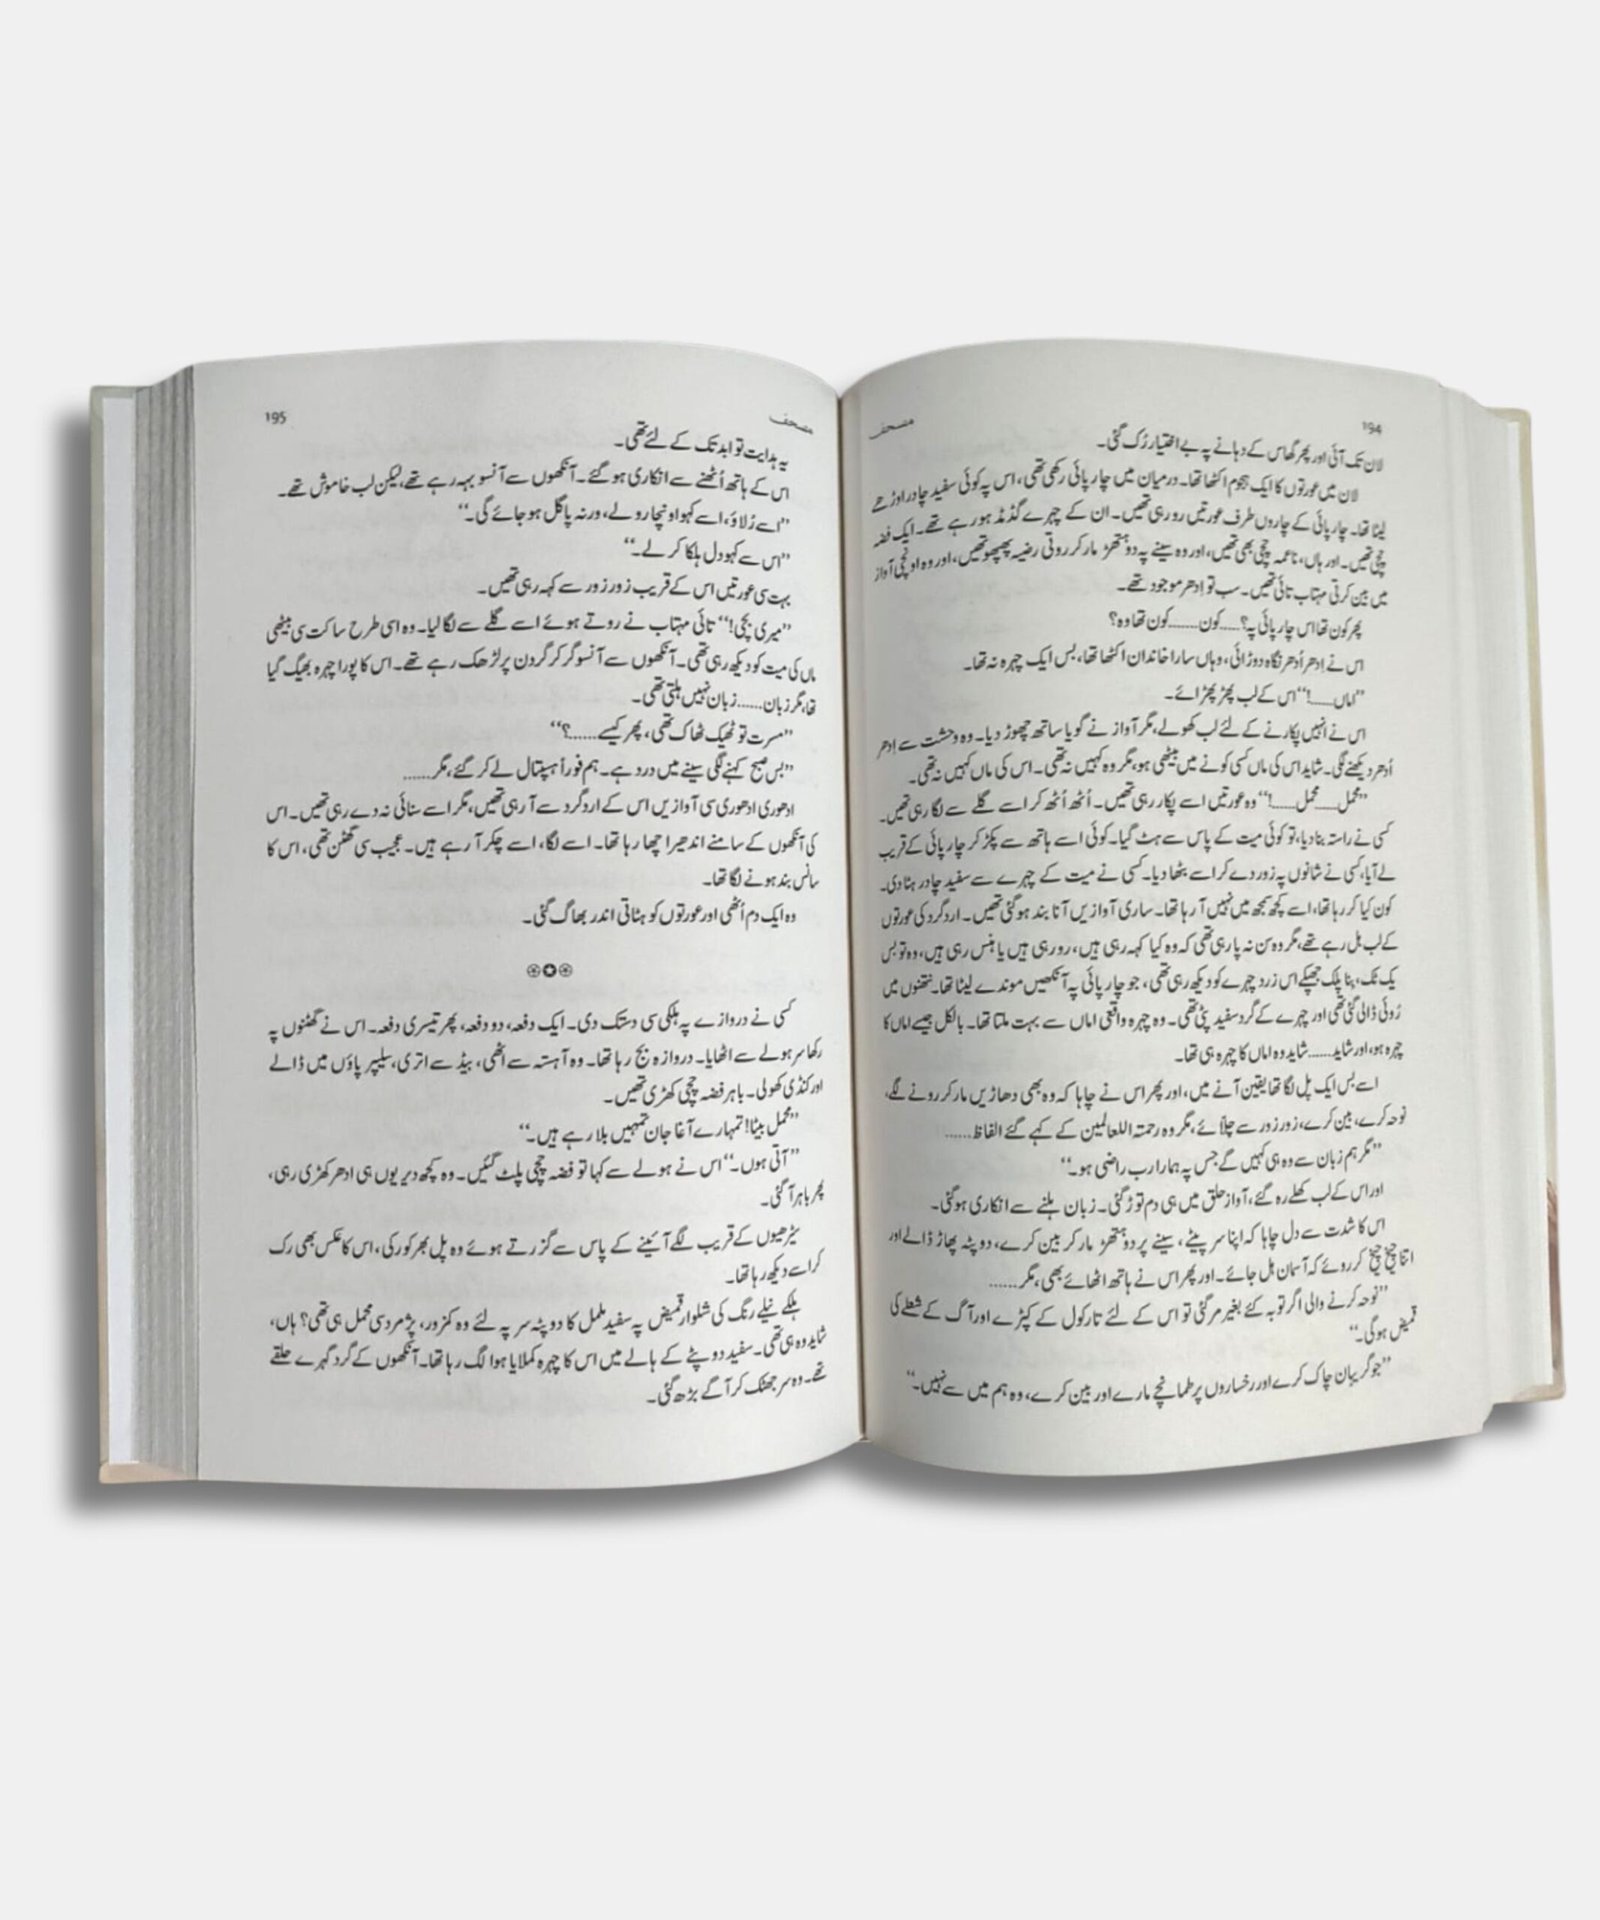 194
مصحف
لان تک آئی اور پھر گھاس کے دہانے پہ بے اختیار رُک گئی۔
لان میں عورتوں کا ایک ہجوم اکٹھا تھا۔ درمیان میں چارپائی رکھی تھی، اس پہ کوئی سفید چادر اوڑھے
لیٹا تھا۔ چارپائی کے چاروں طرف عورتیں رو رہی تھیں۔ ان کے چہرے گڈمڈ ہو رہے تھے۔ ایک فضہ
چچی تھیں۔ اور ہاں، ناعمہ چچی بھی تھیں، اور وہ سینے پہ دو ہتھڑ مار کر روتی رضیہ پھپھو تھیں، اور وہ اونچی آواز
میں بین کرتی مہتاب تائی تھیں۔ سب تو اِدھر موجود تھے۔
پھر کون تھا اس چارپائی پہ؟ ...... کون ........ کون تھا وہ؟
اس نے اِدھر اُدھر نگاہ دوڑائی، وہاں سارا خاندان اکٹھا تھا، بس ایک چہرہ نہ تھا۔
”اماں ......!“ اس کے لب پھڑپھڑائے۔
اس نے انہیں پکارنے کے لئے لب کھولے، مگر آواز نے گویا ساتھ چھوڑ دیا۔ وہ وحشت سے اِدھر
اُدھر دیکھنے لگی۔ شاید اس کی ماں کسی کونے میں بیٹھی ہو، مگر وہ کہیں نہ تھی۔ اس کی ماں کہیں نہ تھی۔
”محمل ...... محمل ......!“ وہ عورتیں اسے پکار رہی تھیں۔ اُٹھ اُٹھ کر اسے گلے سے لگا رہی تھیں۔
کسی نے راستہ بنا دیا، تو کوئی میت کے پاس سے ہٹ گیا۔ کوئی اسے ہاتھ سے پکڑ کر چارپائی کے قریب
لے آیا، کسی نے شانوں پہ زور دے کر اسے بٹھا دیا۔ کسی نے میت کے چہرے سے سفید چادر ہٹا دی۔
کون کیا کر رہا تھا، اسے کچھ سمجھ میں نہیں آ رہا تھا۔ ساری آوازیں آنا بند ہو گئی تھیں۔ اردگرد کی عورتوں
کے لب ہل رہے تھے، مگر وہ سن نہ پا رہی تھی کہ وہ کیا کہہ رہی ہیں، رو رہی ہیں یا ہنس رہی ہیں، وہ تو بس
یک ٹک، بنا پلک جھپکے اس زرد چہرے کو دیکھ رہی تھی، جو چارپائی پہ آنکھیں موندے لیٹا تھا۔ نتھنوں میں
رُوئی ڈالی گئی تھی اور چہرے کے گرد سفید پٹی تھی۔ وہ چہرہ واقعی اماں سے بہت ملتا تھا۔ بالکل جیسے اماں کا
چہرہ ہو، اور شاید ...... شاید وہ اماں کا چہرہ ہی تھا۔
اسے بس ایک پل لگا تھا یقین آنے میں، اور پھر اس نے چاہا کہ وہ بھی دھاڑیں مار کر رونے لگے،
نوحہ کرے، بین کرے، زور زور سے چلّائے، مگر وہ رحمتہ اللعالمین کے کہے گئے الفاظ ......
”مگر ہم زبان سے وہ ہی کہیں گے جس پہ ہمارا رب راضی ہو۔“
اور اس کے لب کھلے رہ گئے، آواز حلق میں ہی دم توڑ گئی۔ زبان ہلنے سے انکاری ہو گئی۔
اس کا شدت سے دل چاہا کہ اپنا سر پیٹے، سینے پر دو ہتھڑ مار کر بین کرے، دوپٹہ پھاڑ ڈالے اور
اتنا چیخ چیخ کر روئے کہ آسمان ہل جائے۔ اور پھر اس نے ہاتھ اٹھائے بھی، مگر ......
”نوحہ کرنے والی اگر توبہ کئے بغیر مر گئی تو اس کے لئے تارکول کے کپڑے اور آگ کے شعلے کی
قمیض ہوگی۔“
”جو گریبان چاک کرے اور رخساروں پر طمانچے مارے اور بین کرے، وہ ہم میں سے نہیں۔“
مصحف
195
یہ ہدایت تو ابد تک کے لئے تھی۔
اس کے ہاتھ اُٹھنے سے انکاری ہو گئے۔ آنکھوں سے آنسو بہہ رہے تھے، لیکن لب خاموش تھے۔
”اسے رُلاؤ، اسے کہو اونچا رو لے، ورنہ پاگل ہو جائے گی۔“
”اس سے کہو دل ہلکا کر لے۔“
بہت سی عورتیں اس کے قریب زور زور سے کہہ رہی تھیں۔
”میری بچی!“ تائی مہتاب نے روتے ہوئے اسے گلے سے لگا لیا۔ وہ اسی طرح ساکت سی بیٹھی
ماں کی میت کو دیکھ رہی تھی۔ آنکھوں سے آنسو گر کر گردن پر لڑھک رہے تھے۔ اس کا پورا چہرہ بھیگ گیا
تھا، مگر زبان ...... زبان نہیں ہلتی تھی۔
”مسرت تو ٹھیک ٹھاک تھی، پھر کیسے ......؟“
”بس صبح کہنے لگی سینے میں درد ہے۔ ہم فوراً ہسپتال لے کر گئے، مگر ......
ادھوری ادھوری سی آوازیں اس کے اردگرد سے آ رہی تھیں، مگر اسے سنائی نہ دے رہی تھیں۔ اس
کی آنکھوں کے سامنے اندھیرا چھا رہا تھا۔ اسے لگا، اسے چکر آ رہے ہیں۔ عجیب سی گھٹن تھی، اس کا
سانس بند ہونے لگا تھا۔
وہ ایک دم اُٹھی اور عورتوں کو ہٹاتی اندر بھاگ گئی۔
کسی نے دروازے پہ ہلکی سی دستک دی۔ ایک دفعہ، دو دفعہ، پھر تیسری دفعہ۔ اس نے گھٹنوں پہ
رکھا سر ہولے سے اٹھایا۔ دروازہ بج رہا تھا۔ وہ آہستہ سے اٹھی، بیڈ سے اتری، سلیپر پاؤں میں ڈالے
اور کنڈی کھولی۔ باہر فضہ چچی کھڑی تھیں۔
”محمل بیٹا! تمہارے آغا جان تمہیں بلا رہے ہیں۔“
”آتی ہوں۔“ اس نے ہولے سے کہا تو فضہ چچی پلٹ گئیں۔ وہ کچھ دیر یوں ہی ادھر کھڑی رہی،
پھر باہر آ گئی۔
سیڑھیوں کے قریب لگے آئینے کے پاس سے گزرتے ہوئے وہ پل بھر کو رکی، اس کا عکس بھی رک
کر اسے دیکھ رہا تھا۔
ہلکے نیلے رنگ کی شلوار قمیض پہ سفید ململ کا دوپٹہ سر پہ لئے وہ کمزور، پژمردہ سی محمل ہی تھی؟ ہاں،
شاید وہ ہی تھی۔ سفید دوپٹے کے ہالے میں اس کا چہرہ کملایا ہوا لگ رہا تھا۔ آنکھوں کے گرد گہرے حلقے
تھے۔ وہ سر جھٹک کر آگے بڑھ گئی۔